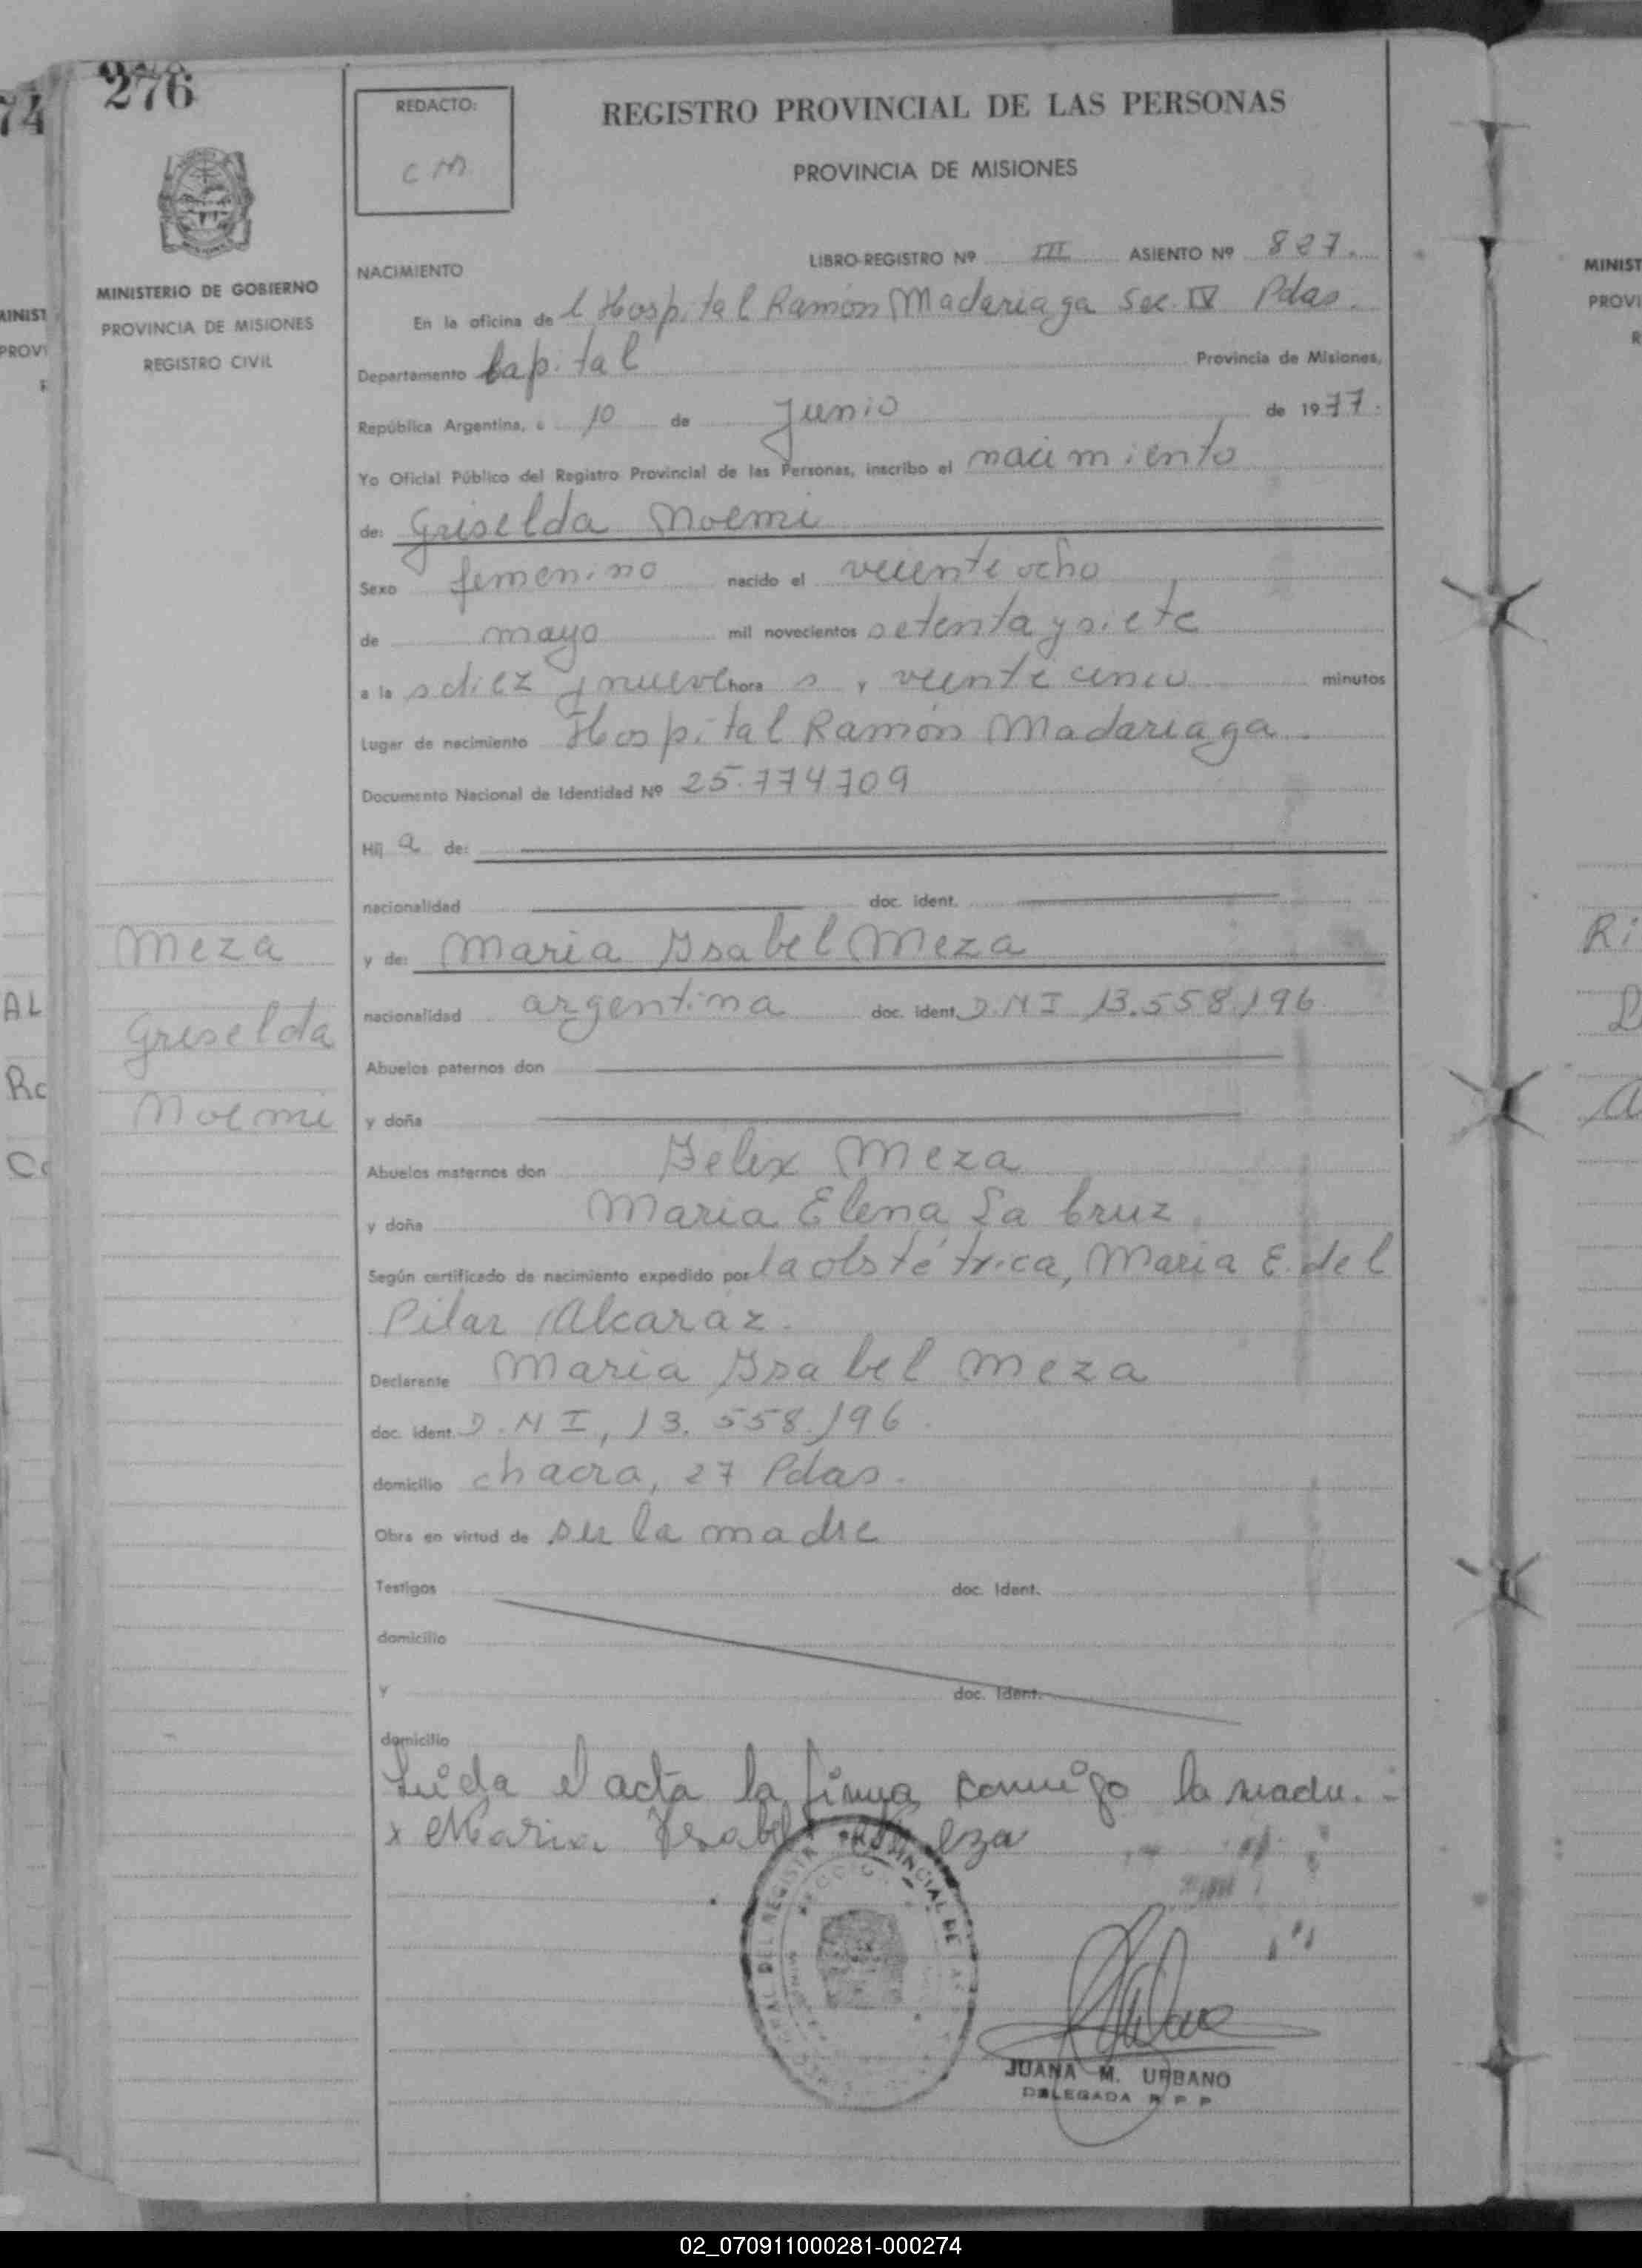 276
REDACTO:
C M
REGISTRO PROVINCIAL DE LAS PERSONAS
PROVINCIA DE MISIONES
MINISTERIO DE GOBIERNO
PROVINCIA DE MISIONES
REGISTRO CIVIL
NACIMIENTO
LIBRO-REGISTRO Nº III ASIENTO Nº 827.
En la oficina de l Hospital Ramón Madariaga Sec. IV Pdas.
Departamento Capital Provincia de Misiones,
República Argentina, a 10 de Junio de 1977.
Yo Oficial Público del Registro Provincial de las Personas, inscribo el nacimiento
de: Griselda Noemi
Sexo femenino nacido el veiente ocho
de mayo mil novecientos setenta y siete
a la s diez y nueve hora s y veinte cinco minutos
Lugar de nacimiento Hospital Ramón Madariaga.
Documento Nacional de Identidad Nº 25.774.709
Hij a de:
nacionalidad doc. ident.
y de: Maria Ysabel Meza
nacionalidad argentina doc. ident. D.N I 13.558.196
Abuelos paternos don
y doña
Abuelos maternos don Felix Meza
y doña Maria Elena La Cruz
Según certificado de nacimiento expedido por la obstétrica, Maria E. del
Pilar Alcaraz.
Declarante Maria Ysabel Meza
doc. ident. D.N I, 13.558.196.
domicilio chacra, 27 Pdas.
Obra en virtud de ser la madre
Testigos doc. Ident.
domicilio
y doc. Ident.
domicilio
Leída el acta la firma conmigo la madre.-
x Maria Ysabel Meza
JUANA M. URBANO
DELEGADA R P P
Meza
Griselda
Noemi
74
MINIST
PROVI
AL
Ro
MINIST
PROVI
R
Ri
02_070911000281-000274